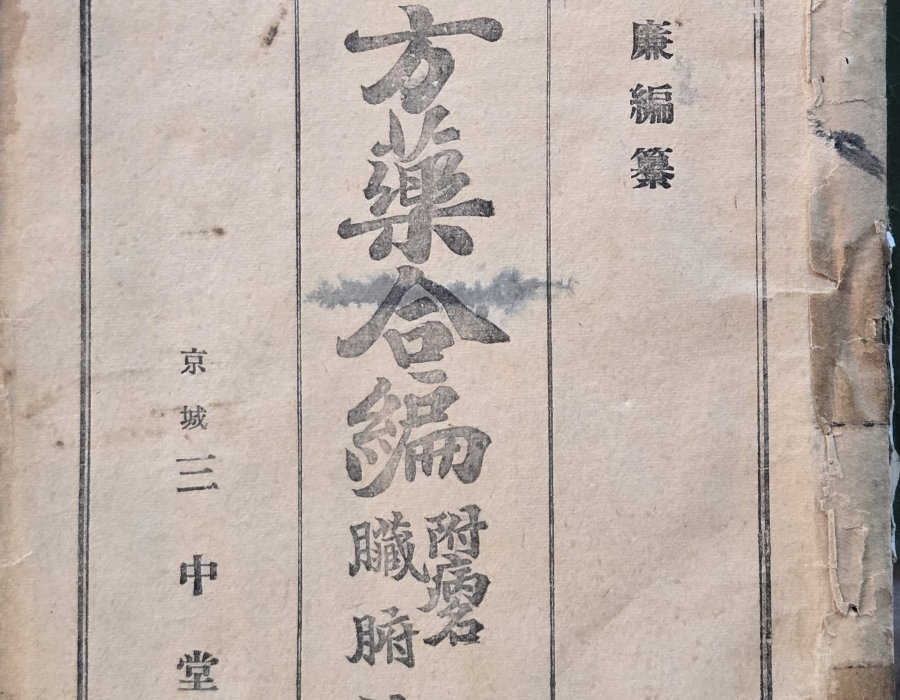 廉編纂
方藥合編
附病名
臟腑
京城三中堂